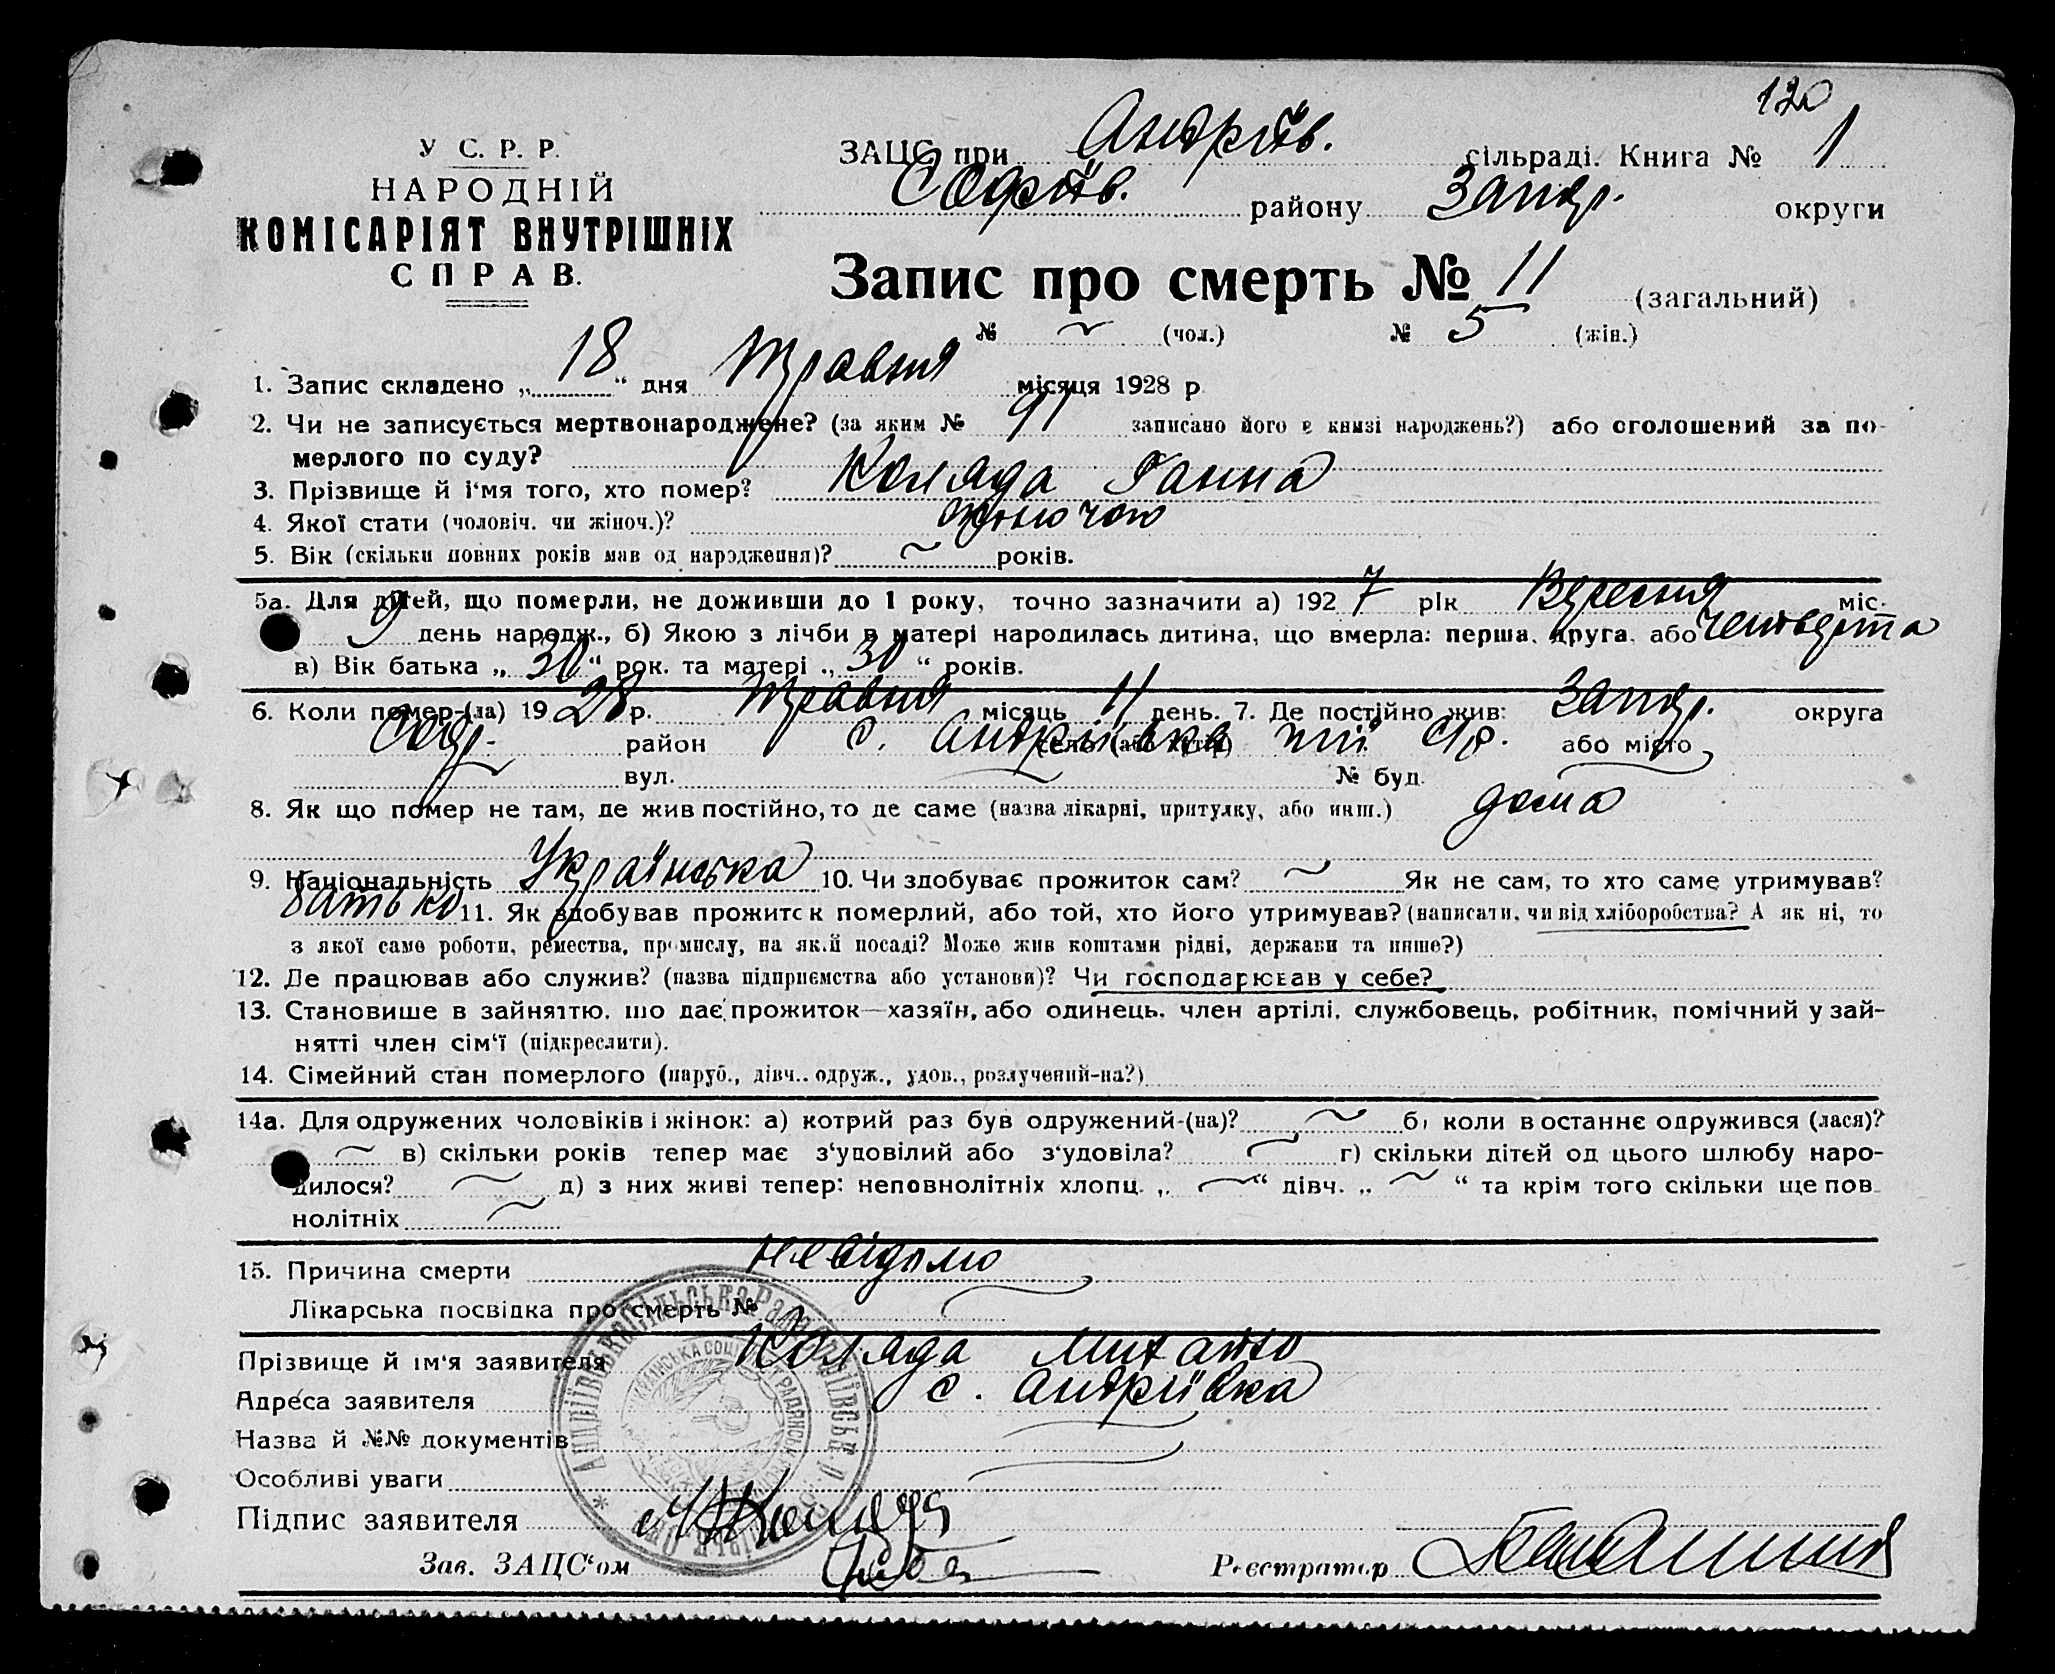 120
У С. Р. Р.
НАРОДНІЙ
КОМІСАРІЯТ ВНУТРІШНІХ
СПРАВ.
ЗАЦС при Андріїв. сільраді. Книга № 1
Софіїв. району Запор. округи
Запис про смерть № 11 (загальний)
№ ~ (чол.) № 5 (жін.)
1. Запис складено „ 18 “ дня Травня місяця 1928 р
2. Чи не записується мертвонароджене? (за яким № 91 записано його в книзі народжень?) або оголошений за по-
мерлого по суду?
3. Прізвище й і'мя того, хто помер? Коляда Ганна
4. Якої стати (чоловіч. чи жіноч.)? жіночою
5. Вік (скільки повних років мав од народження)? ~ років.
5а. Для дітей, що померли, не доживши до 1 року, точно зазначити а) 1927 рік Вересня міс.
9 день народж., б) Якою з лічби в матері народилась дитина, що вмерла: перша, друга, або четверта
в) Вік батька „ 30 “ рок. та матері „ 30 “ років.
6. Коли помер-(ла) 1928 р. Травня місяць 11 день. 7. Де постійно жив: Запор. округа
Соф. район с. Андріївка село (або хутір) або місто
вул. № буд.
8. Як що помер не там, де жив постійно, то де саме (назва лікарні, притулку, або инш.) дома
9. Національність Українська 10. Чи здобуває прожиток сам? ~ Як не сам, то хто саме утримував?
батько 11. Як здобував прожиток померлий, або той, хто його утримував? (написати, чи від хліборобства? А як ні, то
з якої саме роботи, ремества, промислу, на якій посаді? Може жив коштами рідні, держави та инше?)
12. Де працював або служив? (назва підприємства або установи)? Чи господарював у себе?
13. Становище в зайняттю, що дає прожиток—хазяїн, або одинець, член артілі, службовець, робітник, помічний у зай-
нятті член сім'ї (підкреслити).
14. Сімейний стан померлого (паруб., дівч., одруж., удов., розлучений-на?)
14а. Для одружених чоловіків і жінок: а) котрий раз був одружений-(на)? ~ б) коли востаннє одружився (лася)?
~ в) скільки років тепер має з'удовілий або з'удовіла? ~ г) скільки дітей од цього шлюбу наро-
дилося? ~ д) з них живі тепер: неповнолітніх хлопц. „ ~ “ дівч. „ ~ “ та крім того скільки ще пов-
нолітніх ~
15. Причина смерти невідомо
Лікарська посвідка про смерть №
Прізвище й ім'я заявителя Коляда Михайло
Адреса заявителя с. Андріївка
Назва й №№ документів
Особливі уваги
Підпис заявителя М Коляда
Зав. ЗАЦС'ом Реєстратор